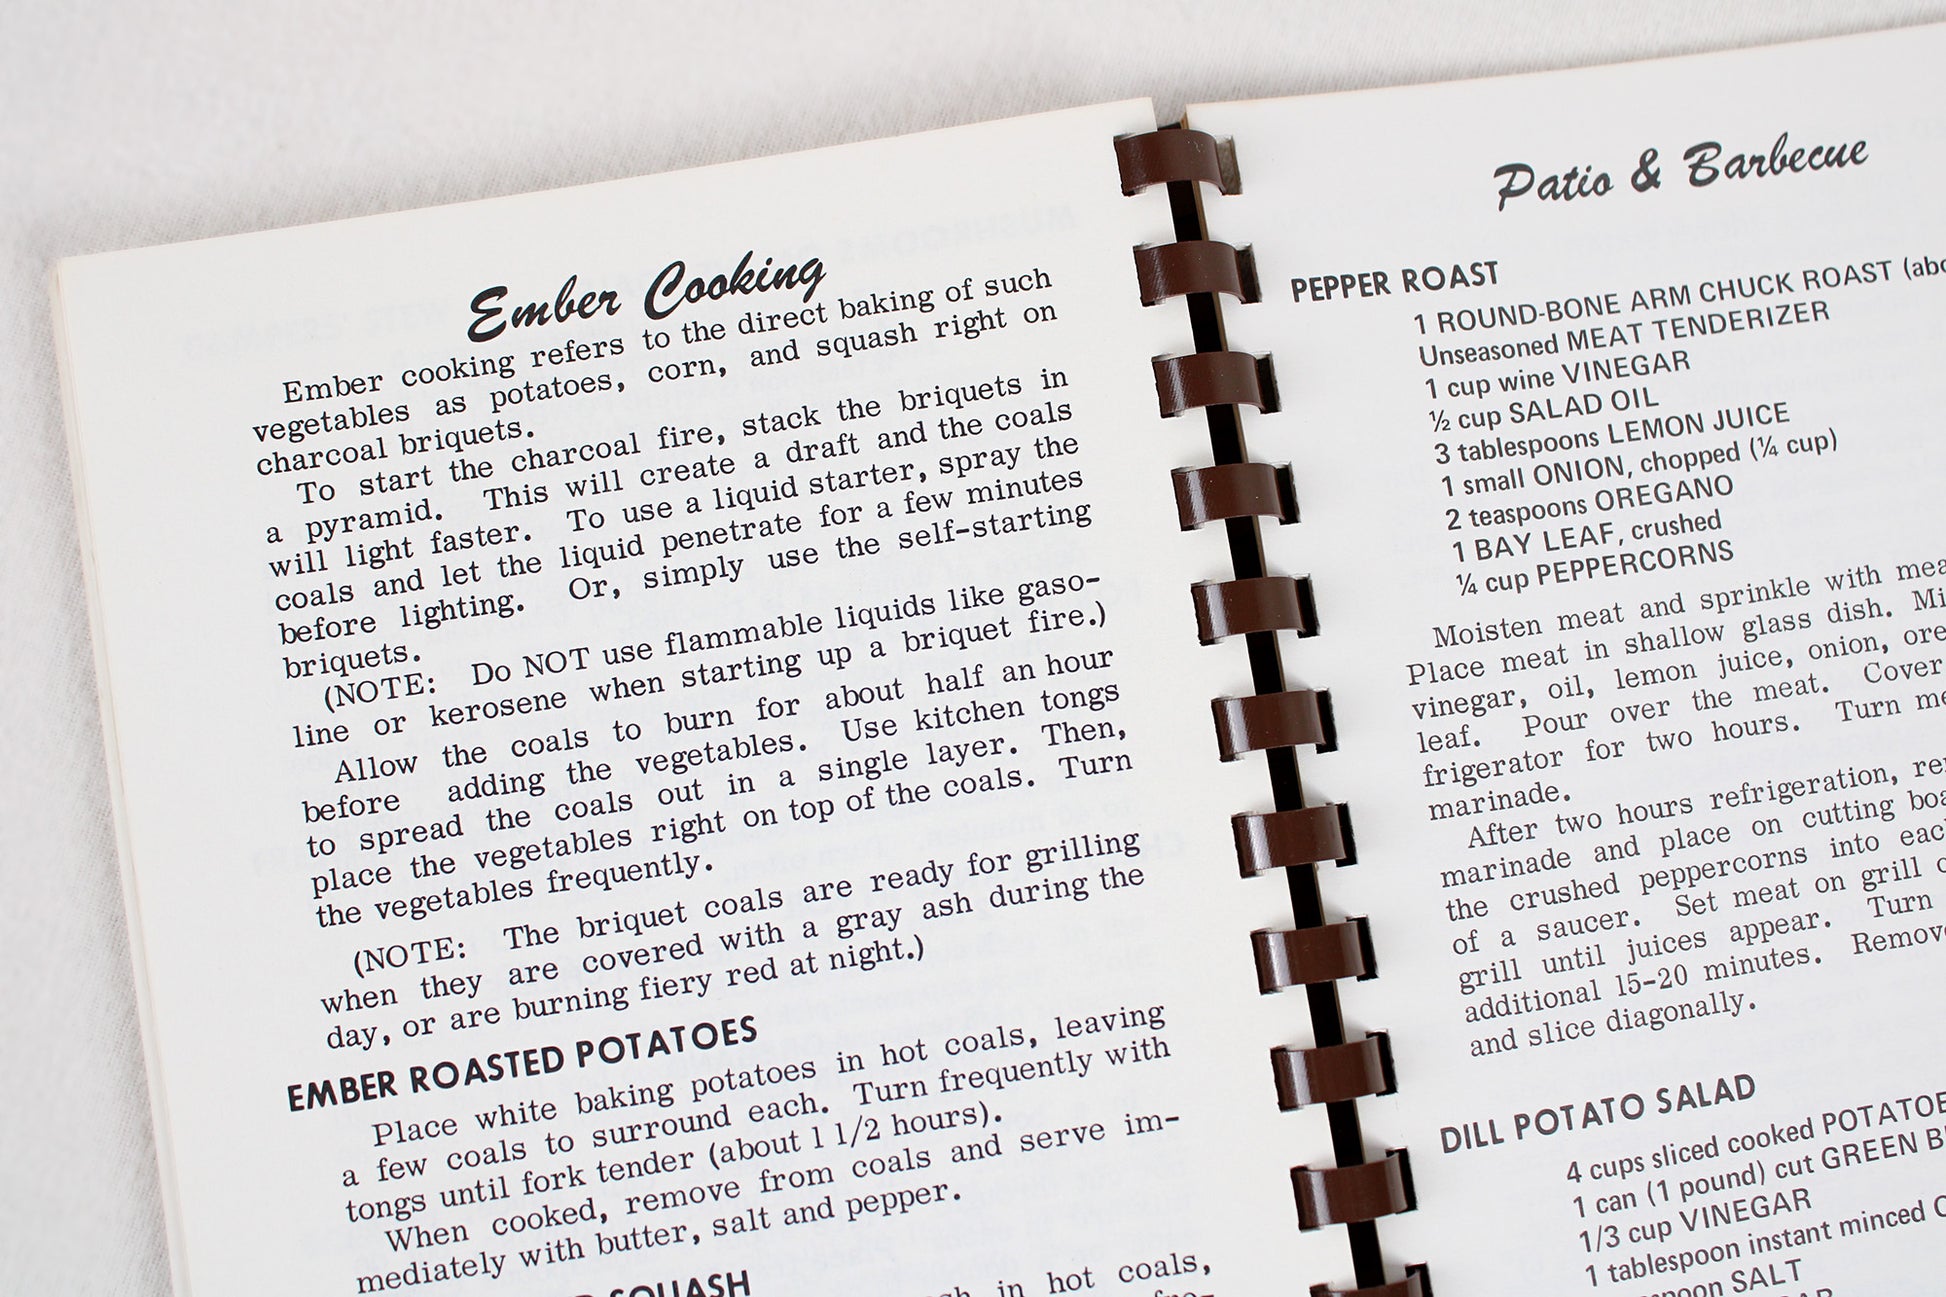 Ember Cooking
Ember cooking refers to the direct baking of such
vegetables as potatoes, corn, and squash right on
charcoal briquets.
To start the charcoal fire, stack the briquets in
a pyramid. This will create a draft and the coals
will light faster. To use a liquid starter, spray the
coals and let the liquid penetrate for a few minutes
before lighting. Or, simply use the self-starting
briquets.
(NOTE: Do NOT use flammable liquids like gaso-
line or kerosene when starting up a briquet fire.)
Allow the coals to burn for about half an hour
before adding the vegetables. Use kitchen tongs
to spread the coals out in a single layer. Then,
place the vegetables right on top of the coals. Turn
the vegetables frequently.
(NOTE: The briquet coals are ready for grilling
when they are covered with a gray ash during the
day, or are burning fiery red at night.)
EMBER ROASTED POTATOES
Place white baking potatoes in hot coals, leaving
a few coals to surround each. Turn frequently with
tongs until fork tender (about 1 1/2 hours).
When cooked, remove from coals and serve im-
mediately with butter, salt and pepper.
SQUASH
in hot coals,
Patio & Barbecue
PEPPER ROAST
1 ROUND-BONE ARM CHUCK ROAST
Unseasoned MEAT TENDERIZER
1 cup wine VINEGAR
½ cup SALAD OIL
3 tablespoons LEMON JUICE
1 small ONION, chopped (¼ cup)
2 teaspoons OREGANO
1 BAY LEAF, crushed
¼ cup PEPPERCORNS
Moisten meat and sprinkle with
Place meat in shallow glass dish.
vinegar, oil, lemon juice, onion,
leaf. Pour over the meat. Cover
frigerator for two hours. Turn
marinade.
After two hours refrigeration,
marinade and place on cutting
the crushed peppercorns into
of a saucer. Set meat on grill
grill until juices appear. Turn
additional 15-20 minutes.
and slice diagonally.
DILL POTATO SALAD
4 cups sliced cooked
1 can (1 pound) cut GREEN
1/3 cup VINEGAR
1 tablespoon instant minced
SALT